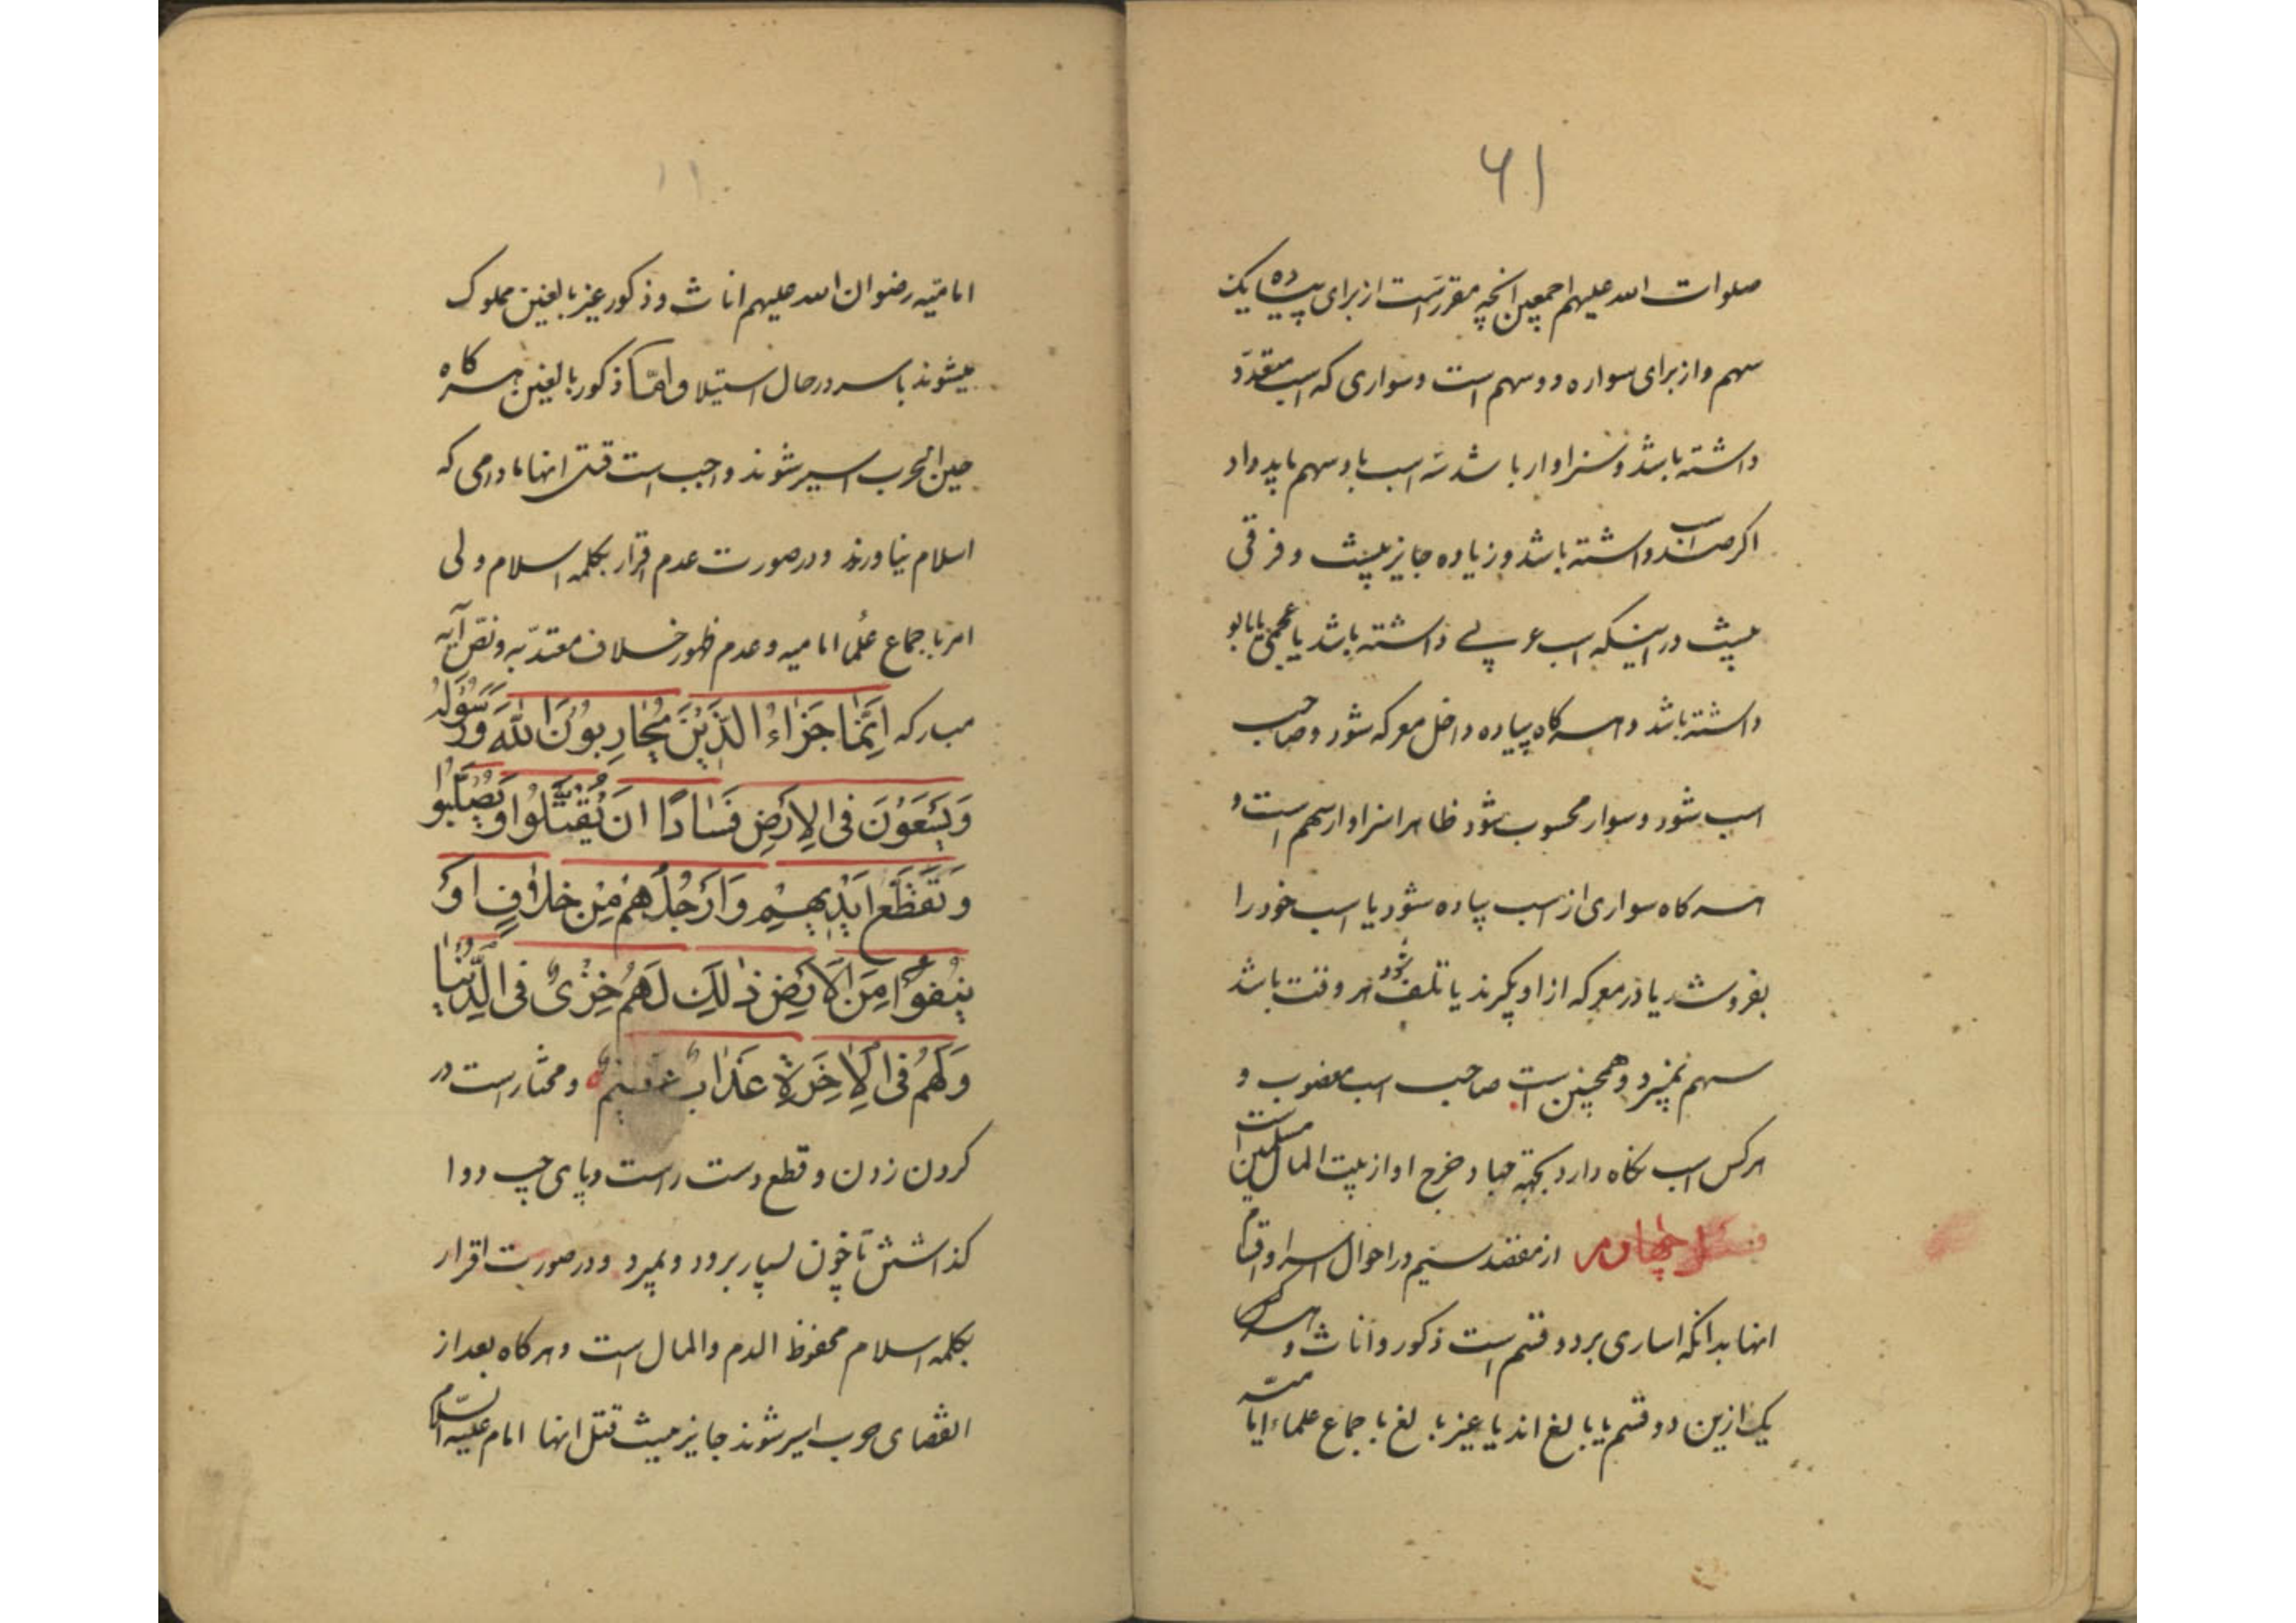 ۶۱
صلوات الله علیهم اجمعین انچه مقرر است از برای پیاده یک
سهم و از برای سواره دو سهم است و سواری که اسب متعدد
داشته باشد و سزاوار باشد سه اسب باو سهم باید داد
اکر صد اسب داشته باشد و زیاده جایز نیست و فرقی
نیست در اینکه اسب عربی داشته باشد یا عجمی یا یابو
داشته باشد و هر کاه پیاده داخل معرکه شود و صاحب
اسب شود و سوار محسوب شود ظاهرا سزاوار سهم است و
هر کاه سواری از اسب پیاده شود یا اسب خود را
بفروشد یا در معرکه از او بکیرند یا تلف شود هر وقت باشد
سهم نمیبرد و همچنین است صاحب اسب مغصوب و
هر کس اسب نکاه دارد بجهة جهاد خرج او از بیت المال مسلمین است
فصل چهارم از مقصد سیم در احوال اسرا و اقسام
انها بدانکه اساری بر دو قسم است ذکور و اناث و هر
یک ازین دو قسم یا بالغ اند یا غیر بالغ باجماع علماء امامیه
امامیه رضوان الله علیهم اناث و ذکور غیر بالغین مملوک
میشوند باسر در حال استیلا و امّا ذکور بالغین هر کاه
حین الحرب اسیر شوند واجب است قتل انها مادامی که
اسلام نیاورند و در صورت عدم اقرار بکلمه اسلام ولی
امر باجماع علما امامیه و عدم ظهور خلاف معتدّ به و نصّ آیه
مبارکه اِنَّمٰا جَزٰاءُ الَّذِینَ یُحٰارِبُونَ اللّٰهَ وَ رَسُولَهُ
وَیَسْعَوْنَ فِی الاَرْضِ فَسٰادًا اَنْ یُقَتَّلُوا اَوْ یُصَلَّبُوا
وَ تُقَطَّعَ اَیْدِیهِمْ وَ اَرْجُلُهُمْ مِنْ خِلافٍ اَوْ
یُنْفَوْا مِنَ الاَرْضِ ذٰلِکَ لَهُمْ خِزْیٌ فِی الدُّنْیٰا
وَلَهُمْ فِی الاٰخِرَةِ عَذٰابٌ عَظیمٌ و مختار است در
کردن زدن و قطع دست راست و پای چپ و وا
کذاشتش تا خون بسیار برود و بمیرد و در صورت اقرار
بکلمه اسلام محفوظ الدم والمال است و هر کاه بعد از
انقضای حرب اسیر شوند جایز نیست قتل انها امام علیه السلام